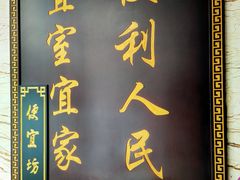 便利人民
宜室宜家
便宜坊